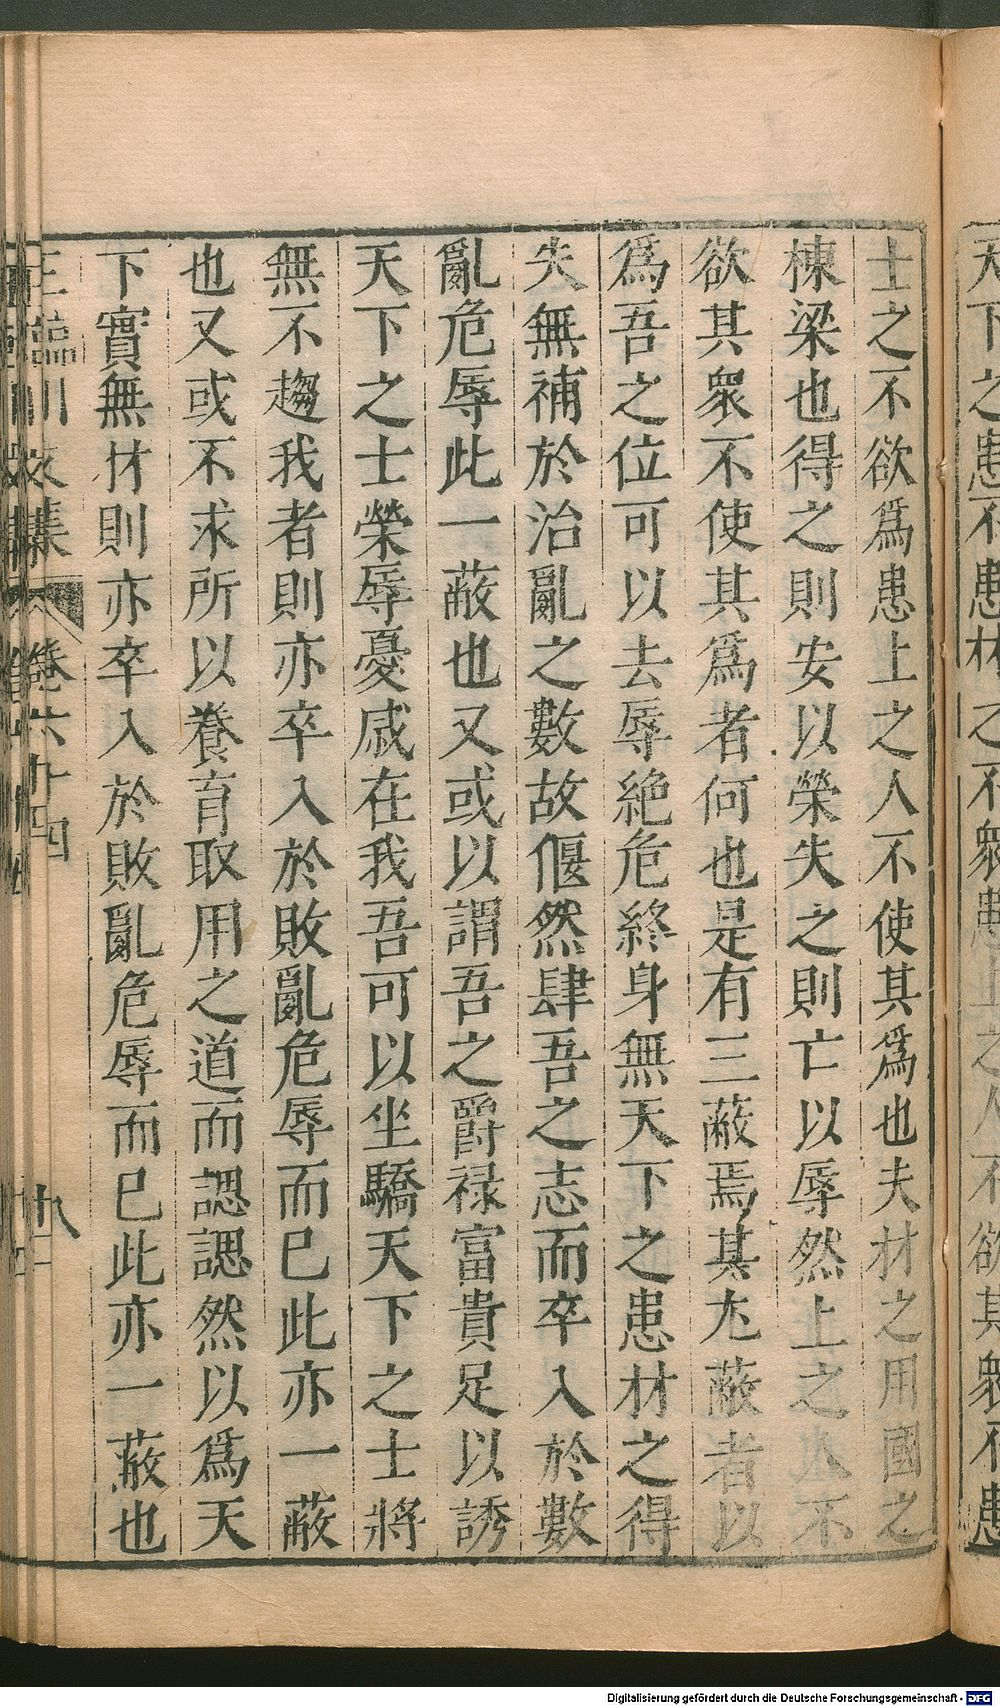 士之不欲爲患上之人不使其爲也夫材之用國之
棟梁也得之則安以榮失之則亡以辱然上之人不
欲其衆不使其爲者何也是有三蔽焉其尤蔽者以
爲吾之位可以去辱絶危終身無天下之患材之得
失無補於治亂之數故偃然肆吾之志而卒入於數
亂危辱此一蔽也又或以謂吾之爵禄富貴足以誘
天下之士榮辱憂戚在我吾可以坐驕天下之士將
無不趨我者則亦卒入於敗亂危辱而已此亦一蔽
也又或不求所以養育取用之道而諰諰然以爲天
下實無材則亦卒入於敗亂危辱而已此亦一蔽也
王臨川文集 卷六十四
Digitalisierung gefördert durch die Deutsche Forschungsgemeinschaft - DFG